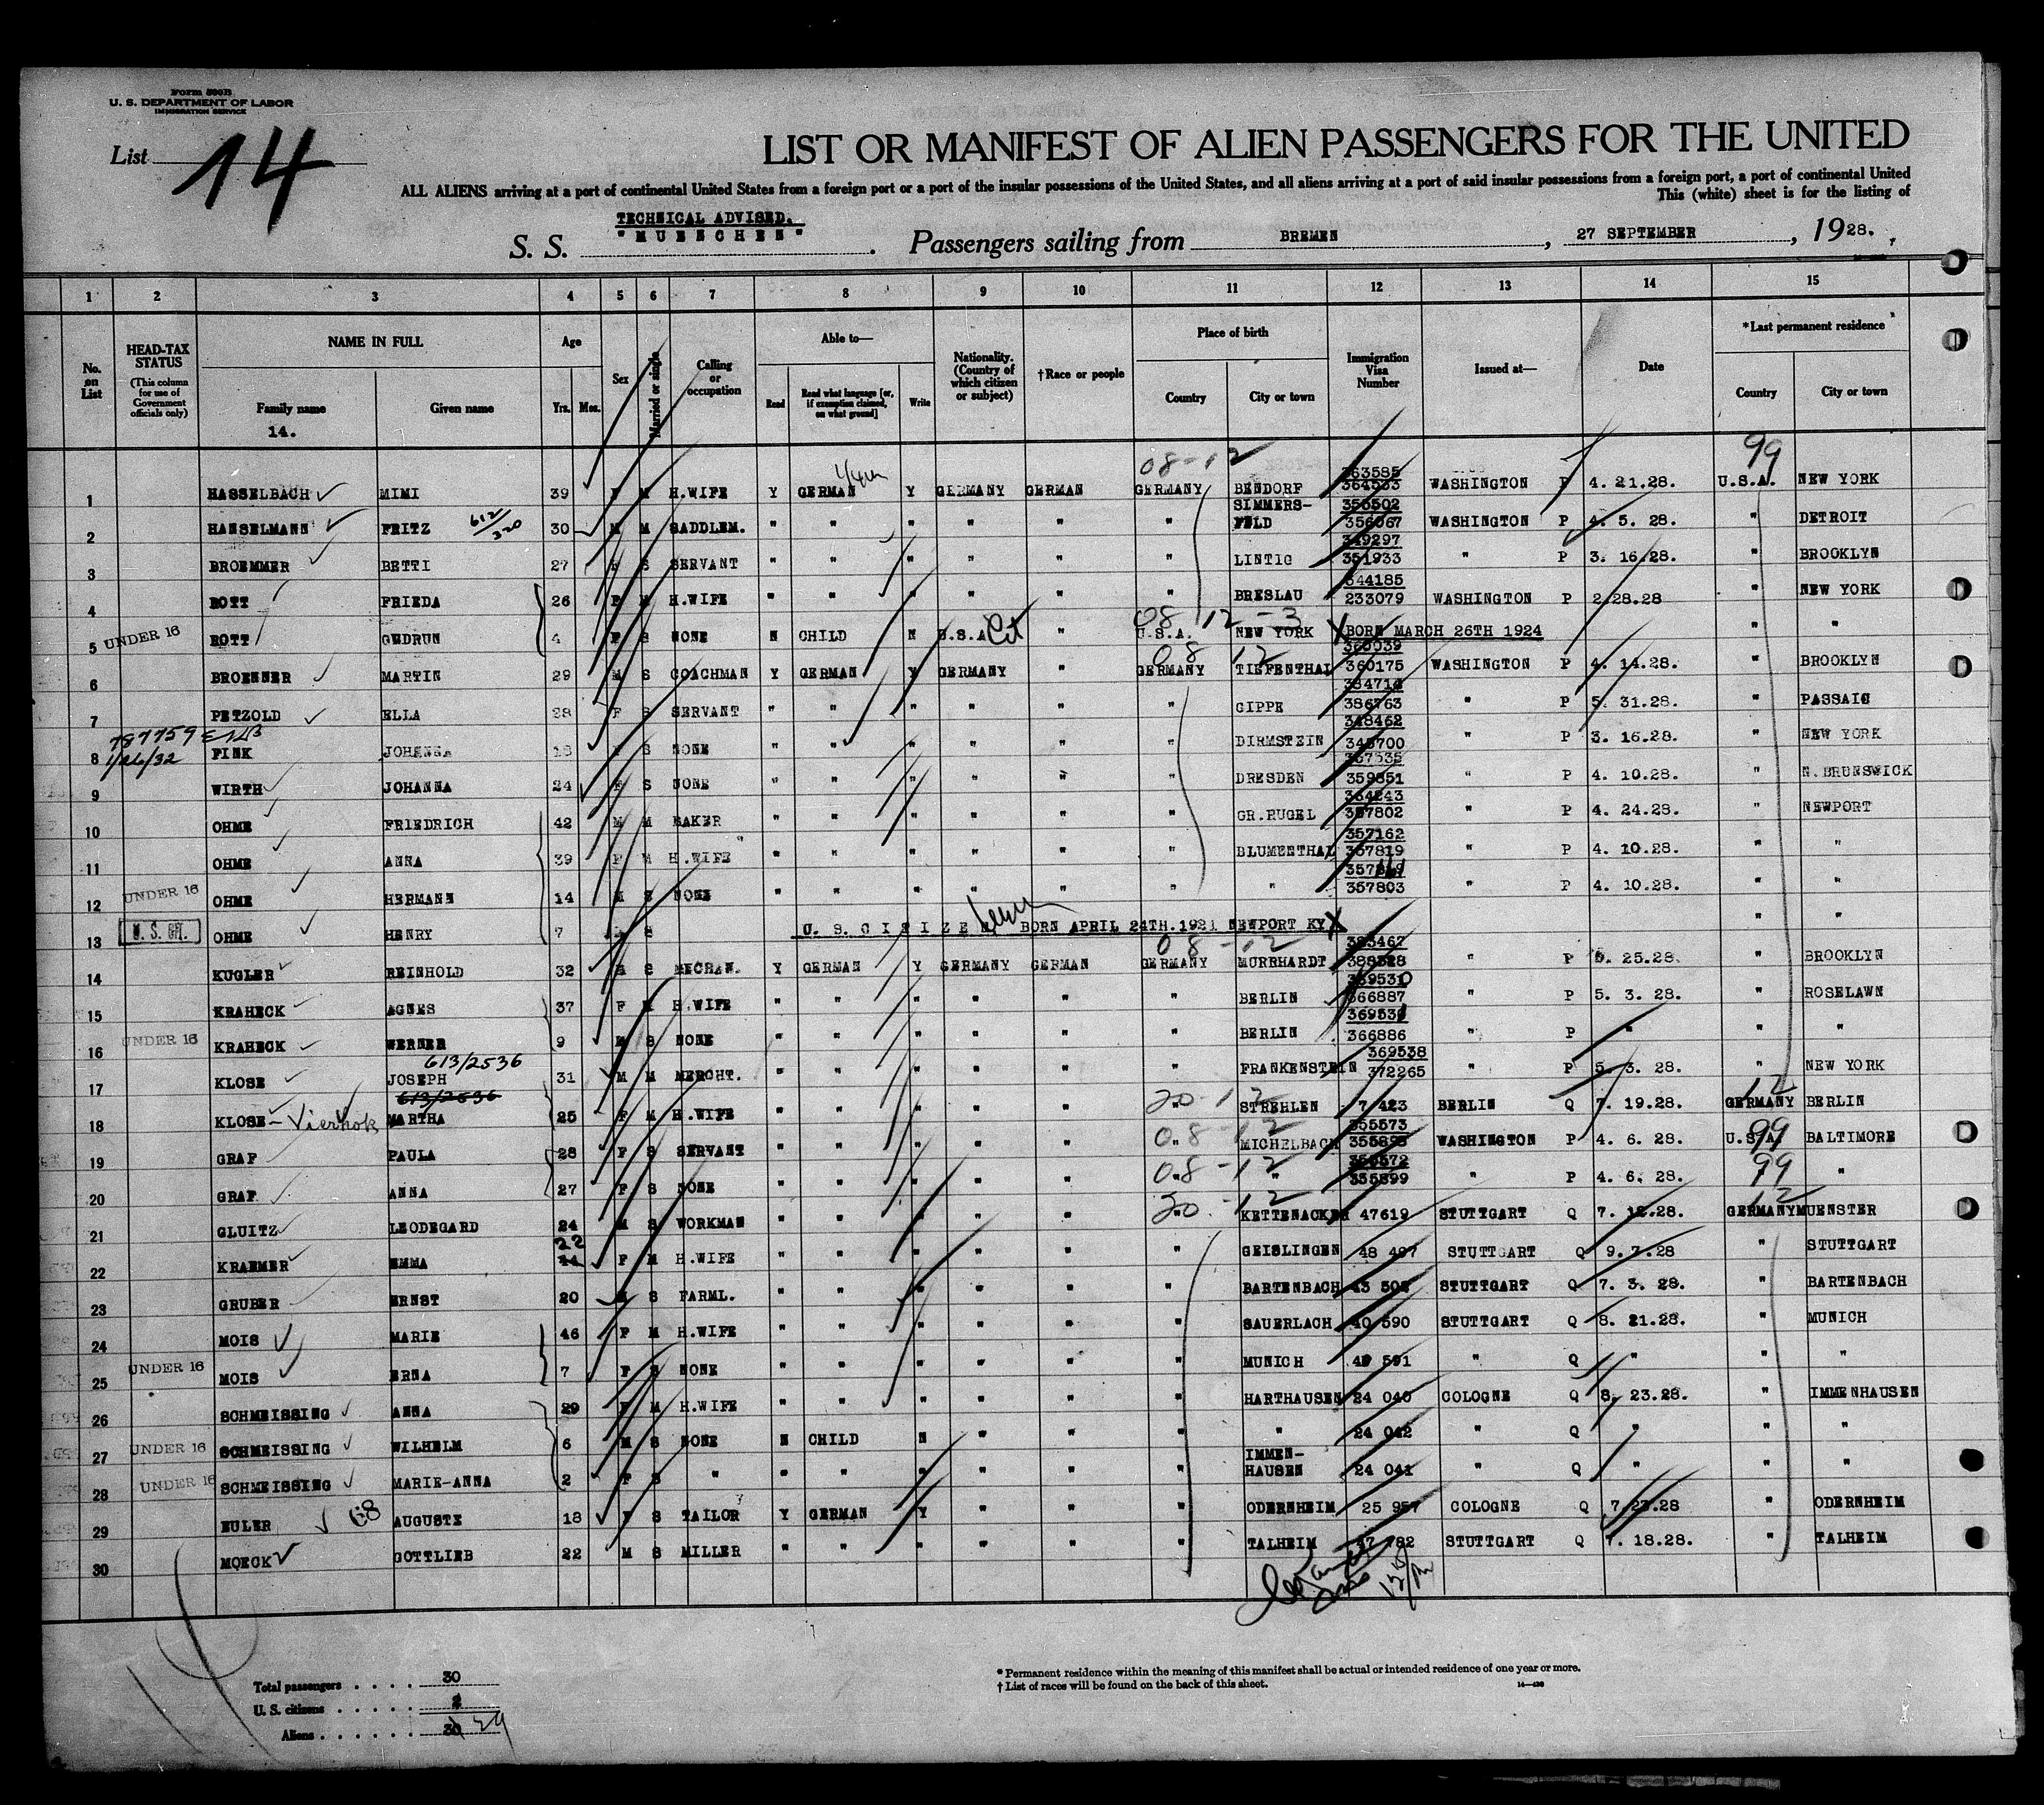 Form 500B
U. S. DEPARTMENT OF LABOR
IMMIGRATION SERVICE
List 14
LIST OR MANIFEST OF ALIEN PASSENGERS FOR THE UNITED
ALL ALIENS arriving at a port of continental United States from a foreign port or a port of the insular possessions of the United States, and all aliens arriving at a port of said insular possessions from a foreign port, a port of continental United
This (white) sheet is for the listing of
TECHNICAL ADVISED.
S. S. "MUENCHEN". Passengers sailing from BREMEN, 27 SEPTEMBER, 1928.,
1 2 3 4 5 6 7 8 9 10 11 12 13 14 15
No. on List
HEAD-TAX STATUS (This column for use of Government officials only)
NAME IN FULL
Family name
Given name
14.
Age
Yrs. Mos.
Sex
Married or single
Calling or occupation
Able to—
Read
Read what language [or, if exemption claimed, on what ground]
Write
Nationality. (Country of which citizen or subject)
†Race or people
Place of birth
Country
City or town
Immigration Visa Number
Issued at—
Date
*Last permanent residence
Country
City or town
08-12 99
1 HASSELBACH MIMI 39 F M H.WIFE Y GERMAN Y GERMANY GERMAN GERMANY BENDORF 363585 WASHINGTON P 4. 21.28. U.S.A. NEW YORK
2 HANSELMANN FRITZ 612/320 30 M M SADDLEM. " " " " " " SIMMERS-FELD 356067 WASHINGTON P 4. 5. 28. " DETROIT
3 BROEMMER BETTI 27 F S SERVANT " " " " " " LINTIG 349297 351933 " P 3. 16.28. " BROOKLYN
4 ROTT FRIEDA 26 F M H.WIFE " " " " " " BRESLAU 344185 233079 WASHINGTON P 2/28.28 " NEW YORK
08 12-3
5 UNDER 16 ROTT GUDRUN 4 F S NONE N CHILD N U.S.A. Cit " U.S.A. NEW YORK X BORN MARCH 26TH 1924 " "
08 12
6 BROENNER MARTIN 29 M S COACHMAN Y GERMAN Y GERMANY " GERMANY TIEFENTHAL 360039 360175 WASHINGTON P 4. 14.28. " BROOKLYN
7 PETZOLD ELLA 28 F S SERVANT " " " " " " CIPPE 386763 " P 5. 31.28. " PASSAIC
787759
1/26/32
8 FINK JOHANNA 18 F S NONE " " " " " " DIRMSTEIN 348462 348700 " P 3. 16.28. " NEW YORK
9 WIRTH JOHANNA 24 F S NONE " " " " " " DRESDEN 359851 " P 4. 10.28. " N.BRUNSWICK
10 OHME FRIEDRICH 42 M M BAKER " " " " " " GR.RUGEL 357802 " P 4. 24.28. " NEWPORT
11 OHME ANNA 39 F M H.WIFE " " " " " " BLUMENTHAL 357162 357819 " P 4. 10.28. " "
12 UNDER 16 OHME HERMANN 14 M S NONE " " " " " " " 357803 " P 4. 10.28. " "
13 OHME HENRY 7 M S U. S. CITIZEN BORN APRIL 24TH.1921 NEWPORT KY X " "
08-12
14 KUGLER REINHOLD 32 M S MECHAN. Y GERMAN Y GERMANY GERMAN GERMANY MURRHARDT 383467 388528 " P 5. 25.28. " BROOKLYN
15 KRAHECK AGNES 37 F M H.WIFE " " " " " " BERLIN 366887 " P 5. 3. 28. " ROSELAWN
16 UNDER 16 KRAHECK WERNER 9 M S NONE " " " " " " BERLIN 366886 " P " " "
613/2536
17 KLOSE JOSEPH 31 M M MERCHT. " " " " " " FRANKENSTEIN 369538 372265 " P 5. 3. 28. " NEW YORK
613/2536 20-12 12
18 KLOSE-Vierhok MARTHA 25 F M H.WIFE " " " " " " STREHLEN 7 423 BERLIN Q 7. 19.28. GERMANY BERLIN
08-12 99
19 GRAF PAULA 28 F S SERVANT " " " " " " MICHELBACH 355573 355898 WASHINGTON P 4. 6. 28. U.S.A. BALTIMORE
08-12 99
20 GRAF ANNA 27 F S NONE " " " " " " " 355572 355899 " P 4. 6. 28. " "
20-12 12
21 GLUITZ LEODEGARD 24 M S WORKMAN " " " " " " KETTENACKER 47619 STUTTGART Q 7. 18.28. GERMANY MUENSTER
22 KRAEMER EMMA 22 F M H.WIFE " " " " " " GEISLINGEN 48 497 STUTTGART Q 9.7.28 " STUTTGART
23 GRUBER ERNST 20 M S FARML. " " " " " " BARTENBACH 43 502 STUTTGART Q 7. 3. 28. " BARTENBACH
24 MOIS MARIE 46 F M H.WIFE " " " " " " SAUERLACH 40 590 STUTTGART Q 8. 21.28. " MUNICH
25 UNDER 16 MOIS ERNA 7 F S NONE " " " " " " MUNICH 40 591 " Q " " "
26 SCHMEISSING ANNA 29 F M H.WIFE " " " " " " HARTHAUSEN 24 040 COLOGNE Q 8. 23.28. " IMMENHAUSEN
27 UNDER 16 SCHMEISSING WILHELM 6 M S NONE N CHILD N " " " " 24 042 " Q " " "
28 UNDER 16 SCHMEISSING MARIE-ANNA 2 F S " " " " " " " IMMEN-HAUSEN 24 041 " Q " " "
29 EULER AUGUSTE 18 F S TAILOR Y GERMAN Y " " " ODERNHEIM 25 957 COLOGNE Q 7.27.28 " ODERNHEIM
30 MOECK GOTTLIEB 22 M S MILLER " " " " " " TALHEIM 47 782 STUTTGART Q 7. 18.28. " TALHEIM
Total passengers . . . . 30
U. S. citizens . . . . . 2
Aliens . . . . . . 30 29
* Permanent residence within the meaning of this manifest shall be actual or intended residence of one year or more.
† List of races will be found on the back of this sheet.